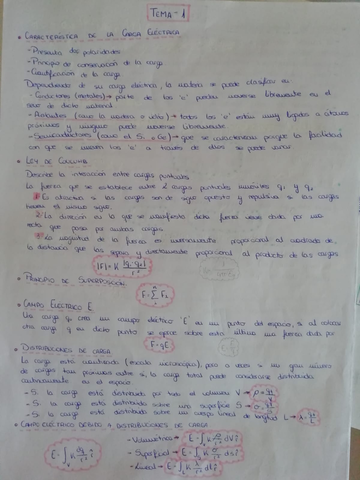 TEMA-1
• CARACTERÍSTICA DE LA CARGA ELÉCTRICA
- Presenta dos polaridades
- Principio de conservación de la carga
- Cuantificación de la carga
Dependiendo de su carga eléctrica, la materia se puede clasificar en
- Conductores (metales) → parte de los e⁻ pueden moverse libremente en el
seno de dicho material
- Aislantes (como la madera o vidrio) → todos los e⁻ están muy ligados a átomos
próximos y ninguno puede moverse libremente
- Semiconductores (como el Si o Ge) → que se caracterizan porque la facilidad
con que se mueven los e⁻ a través de ellos se puede variar
• LEY DE COULOMB
Describe la interacción entre cargas puntuales
La fuerza que se establece entre 2 cargas puntuales inmóviles q₁ y q₂
1 Es atractiva si las cargas son de signo opuesto y repulsiva si las cargas
tienen el mismo signo
2 La dirección en la que se manifiesta dicha fuerza viene dada por una
recta que pasa por ambas cargas
3 La magnitud de la fuerza es inversamente proporcional al cuadrado de
la distancia que las separa y directamente proporcional al producto de las cargas
|F| = K |q₁·q₂| / r²
• PRINCIPIO DE SUPERPOSICIÓN
F = Σ Fᵢ
• CAMPO ELÉCTRICO E
Una carga q crea un campo eléctrico E en un punto del espacio, si al colocar
otra carga q en dicho punto se ejerce sobre esta última una fuerza dada por
F = qE
• DISTRIBUCIONES DE CARGA
La carga está cuantizada (escala microscópica), pero a veces si un gran número
de cargas están próximas entre sí, la carga total puede considerarse distribuida
continuamente en el espacio
- Si la carga está distribuida por todo el volumen V →
- Si la carga está distribuida sobre una superficie S →
- Si la carga está distribuida sobre una línea de longitud L →
• CAMPO ELÉCTRICO DEBIDO A DISTRIBUCIONES DE CARGA
- Volumétrica →
- Superficial →
- Lineal →